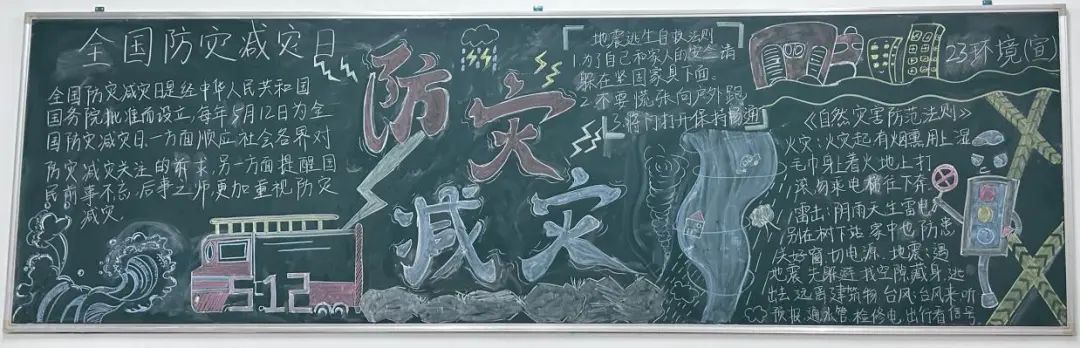 全国防灾减灾日
全国防灾减灾日是经中华人民共和国
国务院批准而设立,每年5月12日为全
国防灾减灾日.一方面顺应社会各界对
防灾减灾关注的需求,另一方面提醒国
民前事不忘,后事之师更加重视防灾
减灾.
5.12
防灾
减灾
地震逃生自救法则
1.为了自己和家人的安全请
躲在坚固家具下面。
2.不要慌张向户外跑
3.将门打开保持畅通
23环境(宣)
《自然灾害防范法则》
火灾:火灾起有烟熏用上湿
毛巾身上着火地上打
滚勿乘电梯往下奔.
雷击:阴雨天生雷电
别在树下站家中也防患
关好窗切电源.地震:遇
地震先躲避找空隙藏身逃
出去远离建筑物台风:台风来听
预报通水管检修电出行看信号